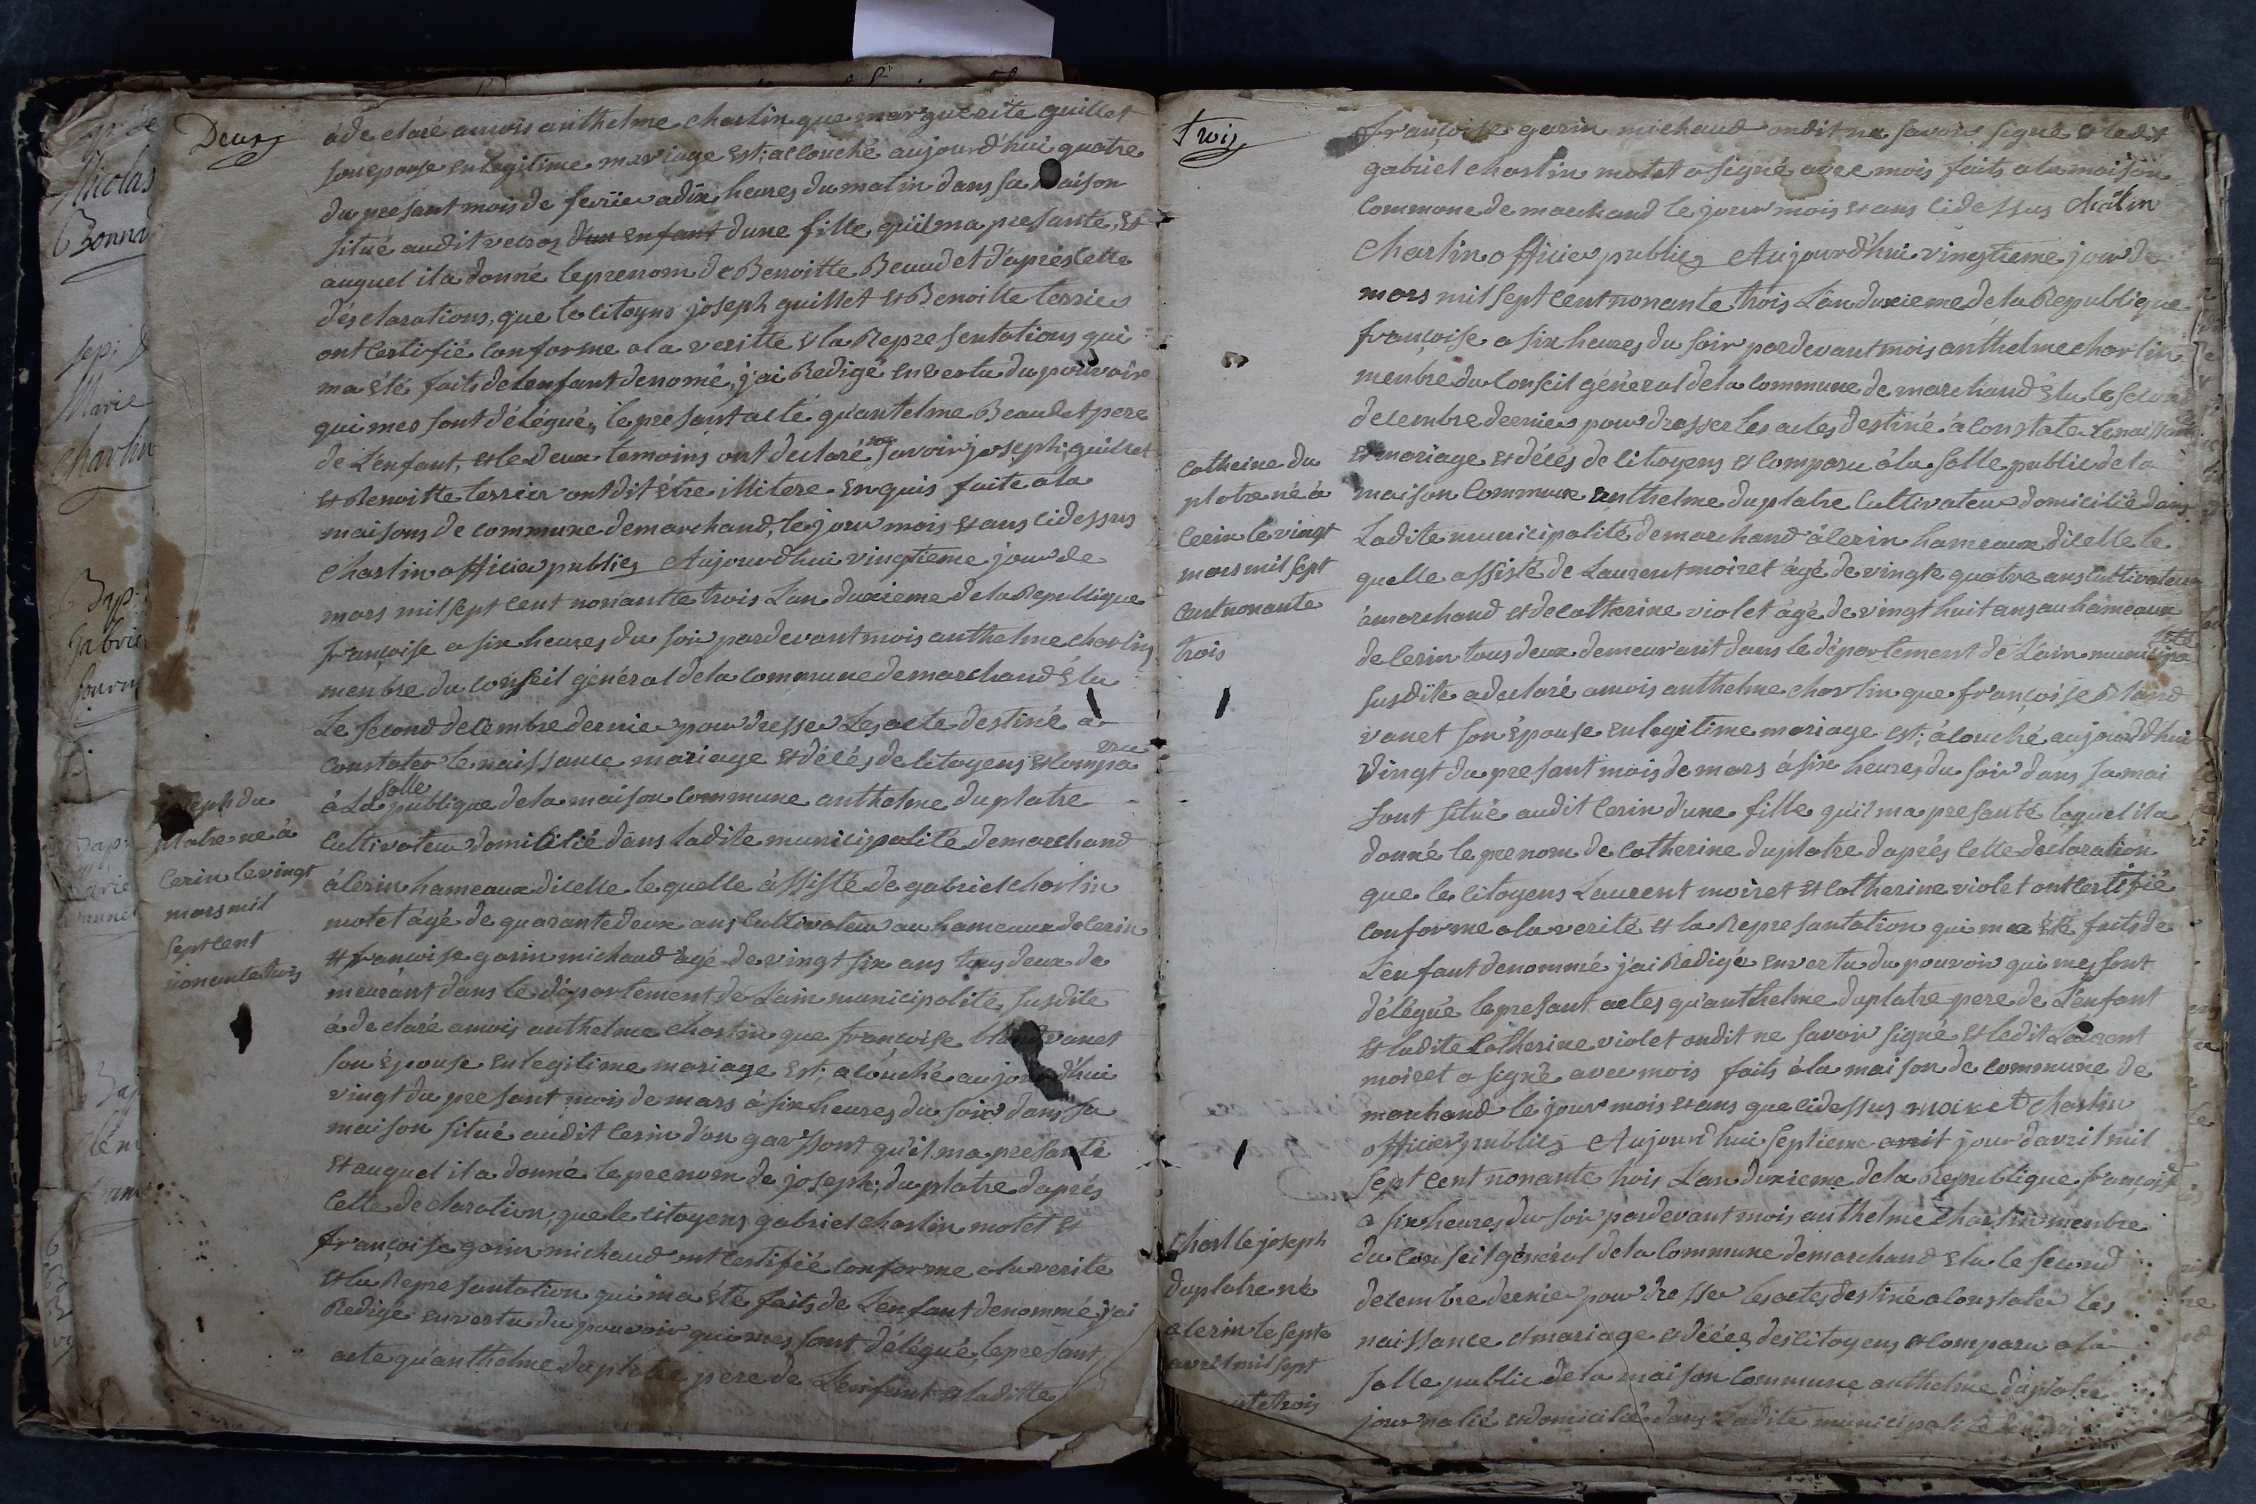 Deux
ádeclaré amois anthelme charlin que marguerite guillet
son epouse en legitime mariage est, accouché aujourd'hui quatre
du presant mois de fevrier a dix heures du matin dans sa maison
situé audit verroz d'un enfant dune fille quil ma presante, et
auquel il a donné le prenom de Benoitte Beaudet d'après cette
désclarations, que le citoyns joseph guillet et Benoitte terrier
ont certifié conforme a la veritte et la Representations qui
ma été faits de lenfant denomé, j'ai Redigé en vertu du pouvoire
qui mes sont délégué, le presant acte qu'antelme Beaudet pere
de L'enfant, et le deux temoins ont declaré savoir joseph guillet
et Benoitte terrier ont dit être illitere enquis faite a la
maisons de commune demarchand, le jour mois et ans cidessus
charlin officier publics Aujourdhui vingtieme jour de
mars mil sept cent nonantte trois L'an duxieme de la Republique
françoise a six heures du soir pardevant mois anthelme charlin
menbre du conseil général dela commune demarchand élu
Le second decembre dernier pour dresser Les acte destiné a
constater le naissance mariage et décés de citoyens et compa
rue
à La salle publique dela maison commune anthelme duplatre
cultivateur domicilié dans ladite municipalité demarchand
álerin hameaux dicelle le quelle ássisté de gabriel charlin
motet ágé de quarante deux ans cultivateur au hameaux de cerin
et françoise gorin michaud agé de vingt six ans tous deux de
meurant dans le département de Lain municipalité susdite
á declaré amois anthelme charlin que françoise vanet
son épouse en legitime mariage est, alouché aujourd'hui
vingt du presant mois de mars á six heures du soir dans sa
maison situé audit cerin d'on garssont qu'il ma presanté
et auquel il a donné le preenom de joseph, duplatre daprés
cette declaration que le citoyens gabriel charlin motet et
françoise gorin michaud ont certifié conforme a la verite
et la Represantation qui ma été faits de Lenfant denommé j'ai
Redigé en vertu du pouvoir qui mes sont délégué, le presant
acte qu'anthelme duplatre pere de Lenfant et laditte
joseph du
platre né á
cerin le vingt
mars mil
sept cent
nonante trois
trois
françoise gorin michaud ondit ne savoir signé et ledit
gabriel charlin motet a signé avec mois faits a la maison
commone de marchand le jour mois et ans cidessus chalin
charlin officier publics Aujourd'hui vingtieme jour de
mors mil sept cent nonante trois L'an duxieme de la Republique
françoise a six heures du soir pardevant mois anthelme charlin
menbre du conseil général dela commune de marchand élu le second
decembre dernier pour drosser les actes destiné á constate le naissance
et mariage et décés de citoyens et comparu á la salle public de la
maison commune anthelme duplatre cultivateur domicilié dans
Ladite municipalité demarchand álerin hameaux dicelle le
quelle assisté de Laurent moiret ágé de vingte quatre ans cultivateur
á marchand et de catherine violet ágé de vingt huit ans au hámeaux
de cerin tous deux demeurant dans le département de Lain municipa
lité
susdite a declaré amois anthelme charlin que françoise Bland
vanet son épouse en legitime mariage est; álouché aujourd'hui
vingt du presant mois de mars á six heures du soir dans sa mai
sont situé audit cerin d'une fille qu'il ma presanté laquel il a
donné le prenom de catherine duplatre daprés cette declaration
que le citoyens Laurent moiret et catherine violet ont certifié
conforme a la verité et la Represantation qui maa été faits de
L'enfant denommé j'ai Redigé en vertu du pouvoir qui mes sont
délégué le presant actes qu'anthelme duplatre pere de L'enfant
et ladite catherine violet ondit ne savoir signé et ledit Laurent
moiret a signé avec mois faits á la maison de commune de
marchand le jour mois et ans que cidessus moiret charlin
officier publics Aujourd'hui septieme avrit jour d'avril mil
sept cent nonante trois L'an duxieme dela Republique françoise
a six heures du soir pardevant mois anthelme charlin menbre
du conseil général dela commune demarchand elu le second
decembre dernier pour dresser les actes destiné a constater les
naissance et mariage et décés des citoyens et comparu a la
salle public de la maison commune anthelme duplatre
journalié et domicilié dans Ladite municipalité
catherine du
platre né á
cerin le vingt
mars mil sept
cent nonante
trois
charlle joseph
duplatre né
a cerin le septe
avril mil sept
trois